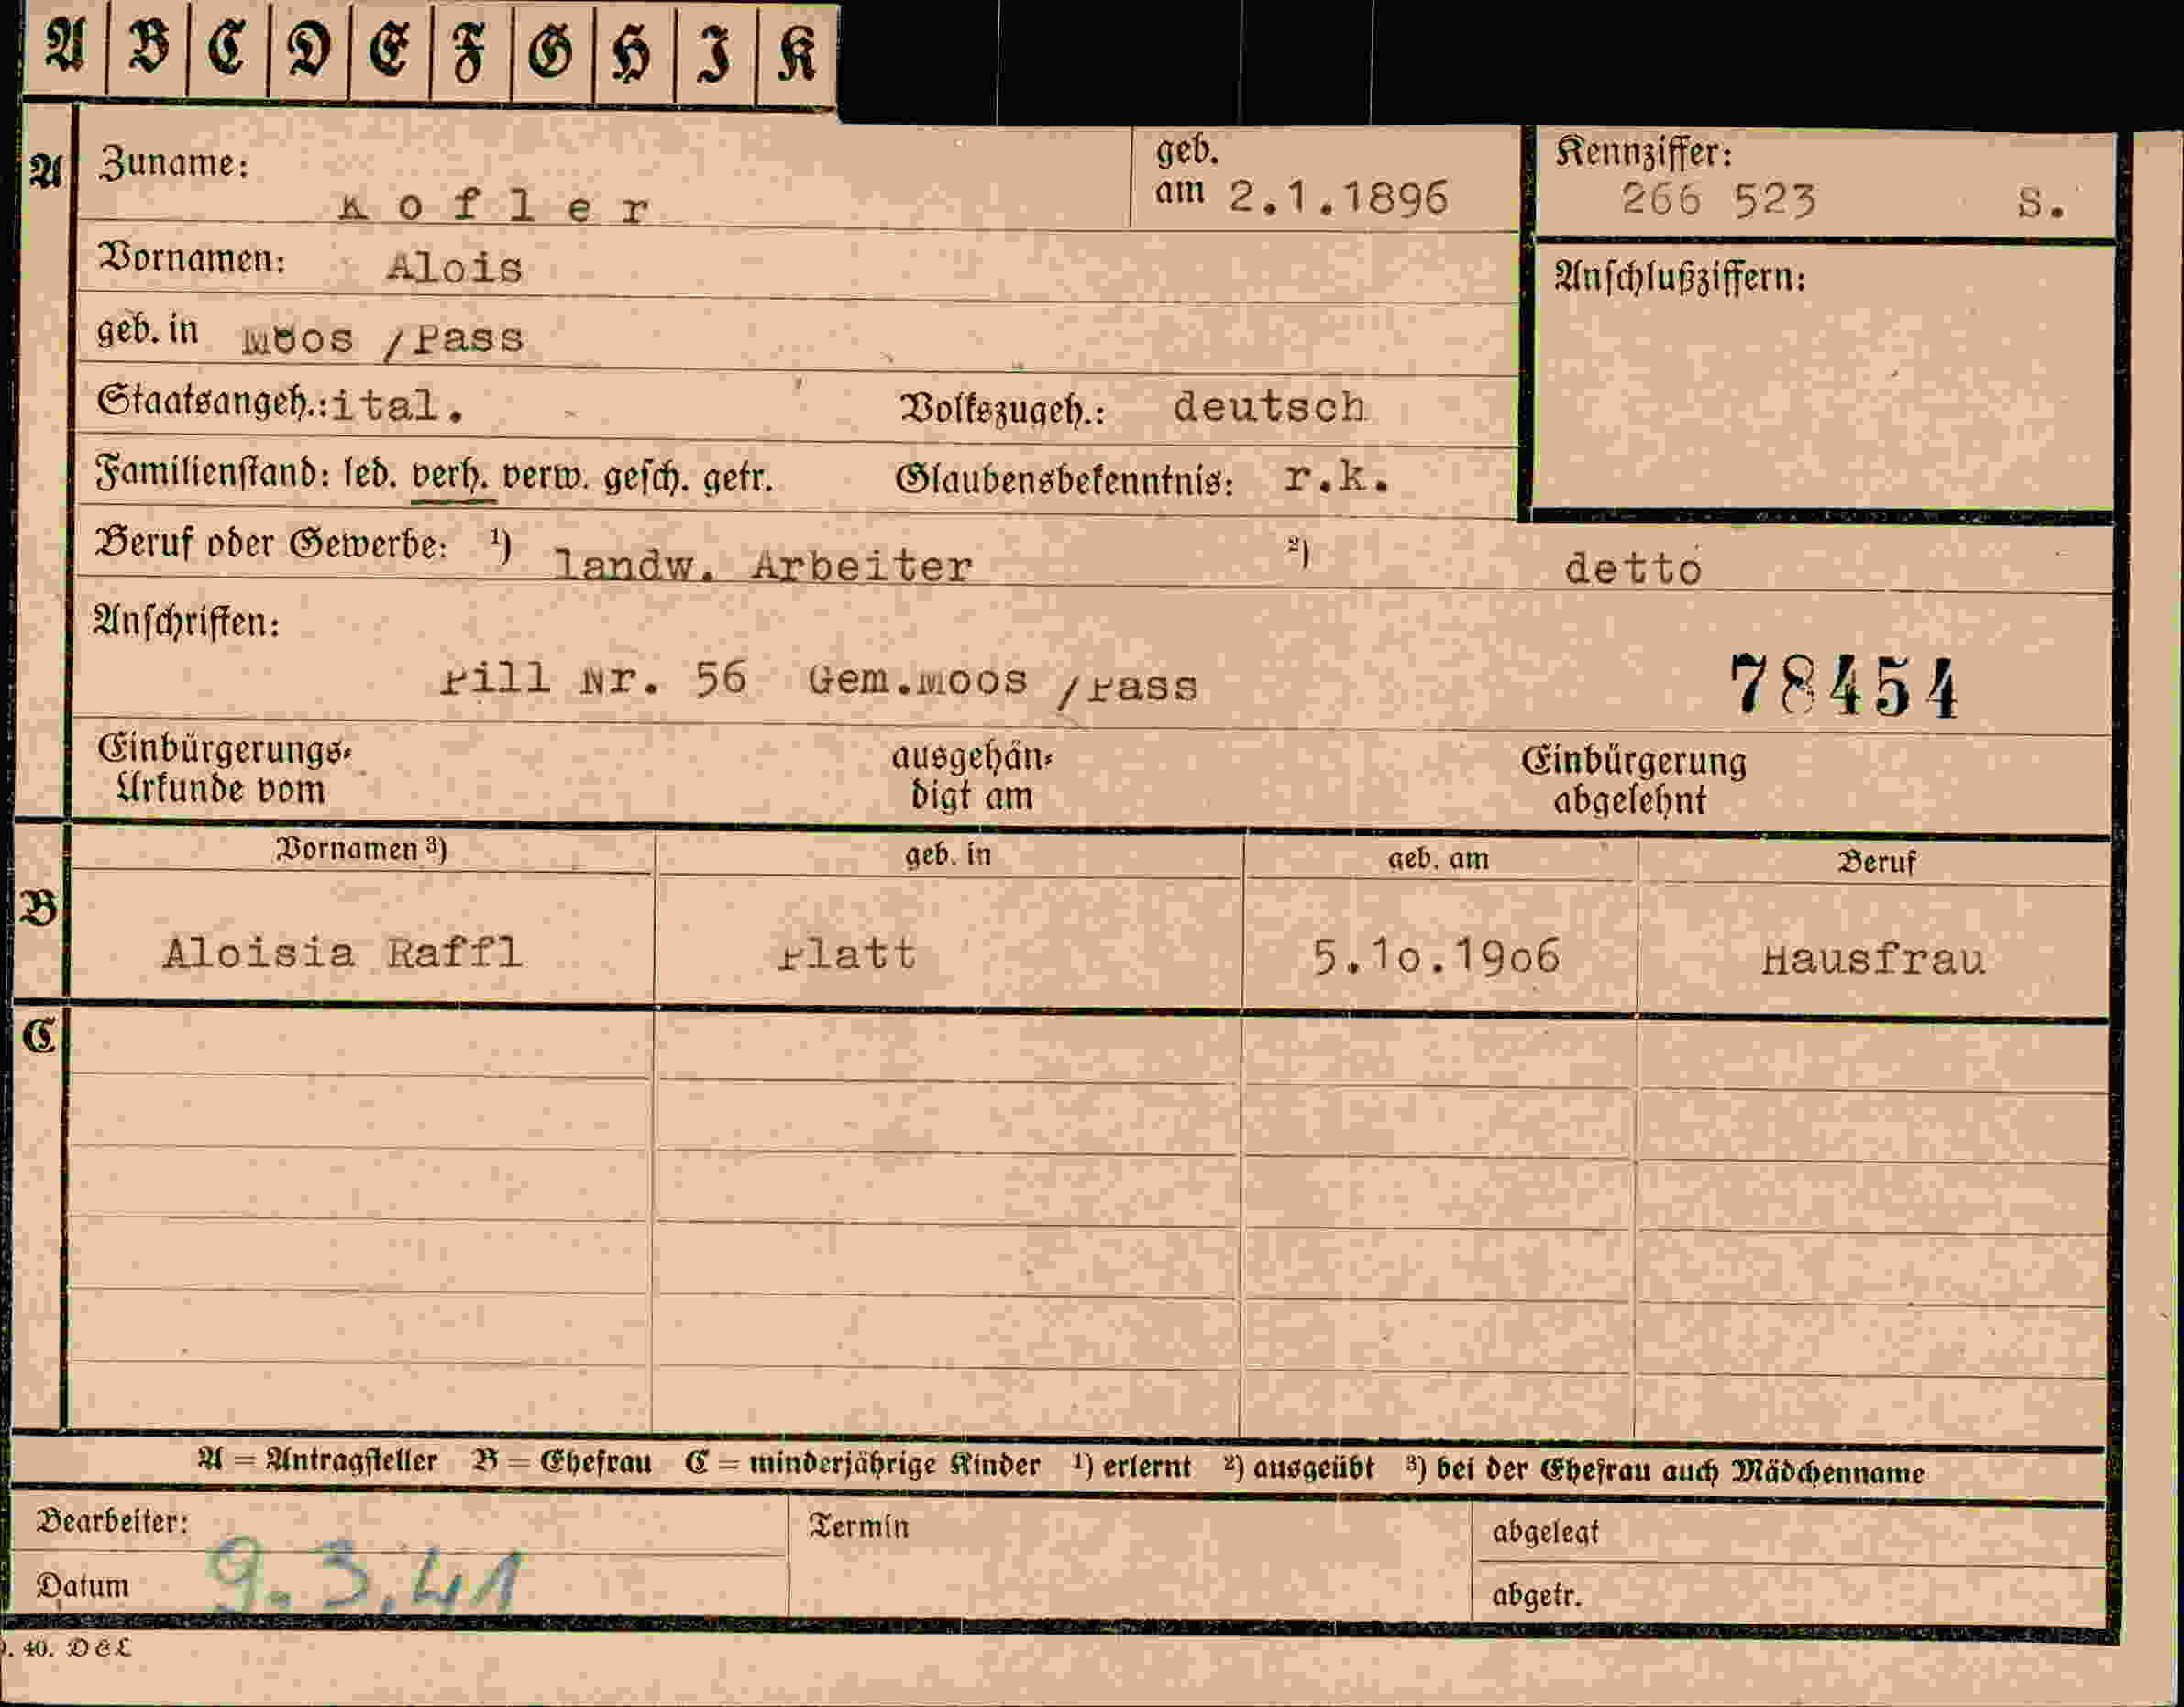 A B C D E F G H I K
A Zuname: Kofler geb. am 2.1.1896 Kennziffer: 266 523 S.
Vornamen: Alois Anschlußziffern:
geb. in Moos /Pass
Staatsangeh.: ital. Volkszugeh.: deutsch
Familienstand: led. verh. verw. gesch. getr. Glaubensbekenntnis: r.k.
Beruf oder Gewerbe: 1) landw. Arbeiter 2) detto
Anschriften:
Pill Nr. 56 Gem.Moos /Pass 78454
Einbürgerungs-Urkunde vom ausgehändigt am Einbürgerung abgelehnt
Vornamen 3) geb. in geb. am Beruf
B Aloisia Raffl Platt 5.10.1906 Hausfrau
C
A = Antragsteller B = Ehefrau C = minderjährige Kinder 1) erlernt 2) ausgeübt 3) bei der Ehefrau auch Mädchenname
Bearbeiter: Termin abgelegt
Datum 9.3.41 abgetr.
. 40. DEL